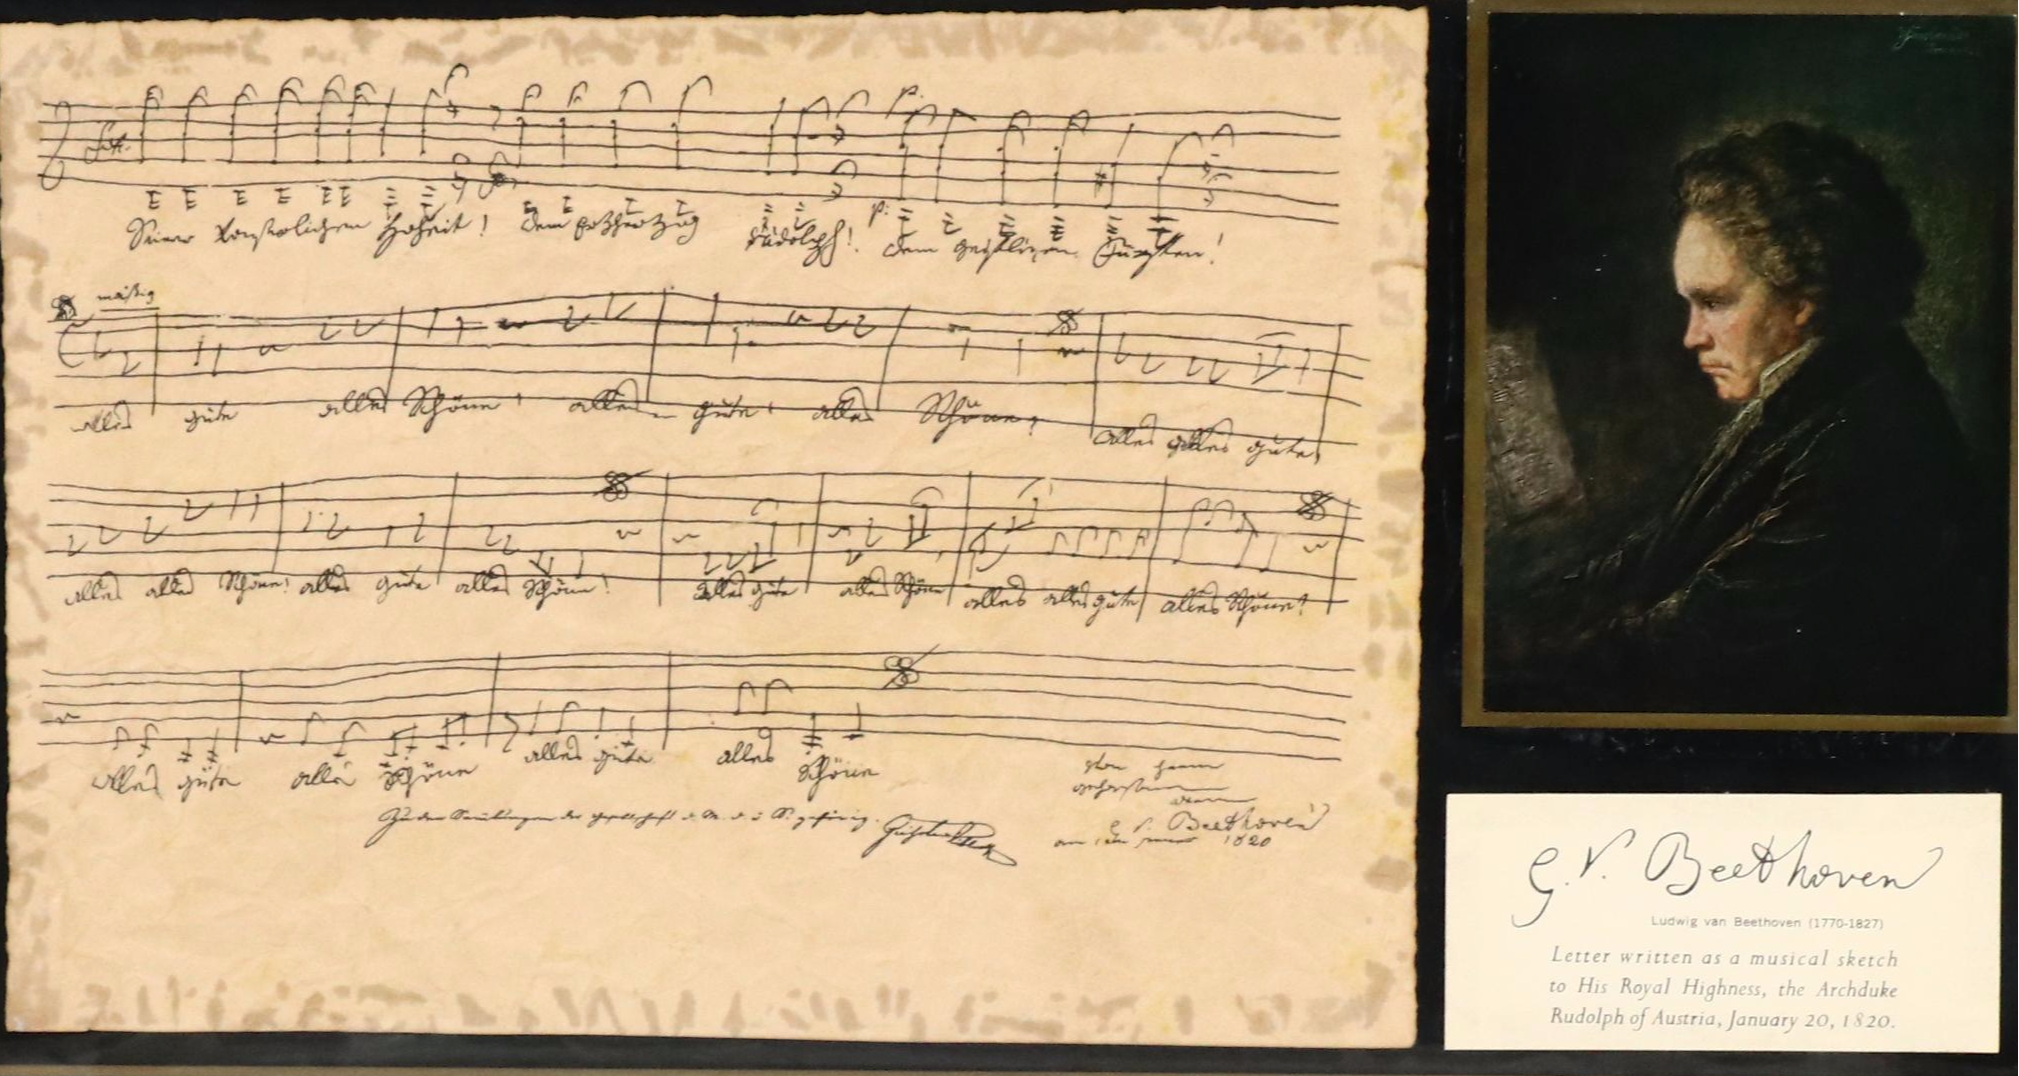 Seiner Kaiserlichen Hoheit! Dem Erzherzog Rudolph! Dem geistlichen Fürsten!
mäßig
alles gute alles Schöne! alles gute! alles Schöne! alles alles gute,
alles alles Schöne! alles gute alles Schöne! alles gute alles Schöne alles alles gute alles Schöne!
alles gute alles Schöne alles gute alles Schöne
von
gehorsamsten
L. v. Beethoven
am 1820
L. v. Beethoven
Ludwig van Beethoven (1770-1827)
Letter written as a musical sketch
to His Royal Highness, the Archduke
Rudolph of Austria, January 20, 1820.